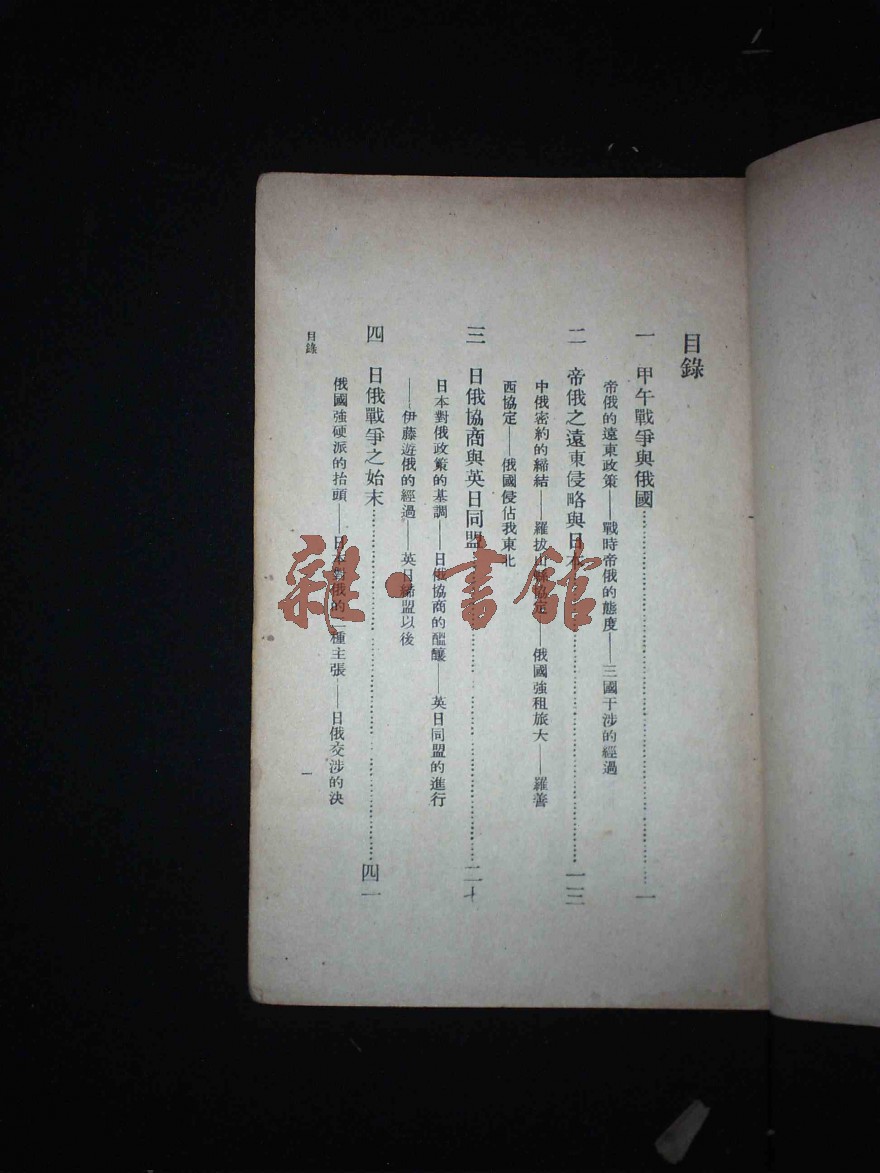 目錄
一 甲午戰爭與俄國……一
帝俄的遠東政策——戰時帝俄的態度——三國干涉的經過
二 帝俄之遠東侵略與日本……一三
中俄密約的締結——羅拔山縣協定——俄國強租旅大——羅善
西協定——俄國侵佔我東北
三 日俄協商與英日同盟……二十
日本對俄政策的基調——日俄協商的醞釀——英日同盟的進行
——伊藤遊俄的經過——英日締盟以後
四 日俄戰爭之始末……四一
俄國強硬派的抬頭——日本對俄的二種主張——日俄交涉的決
目錄
一
雜·書館